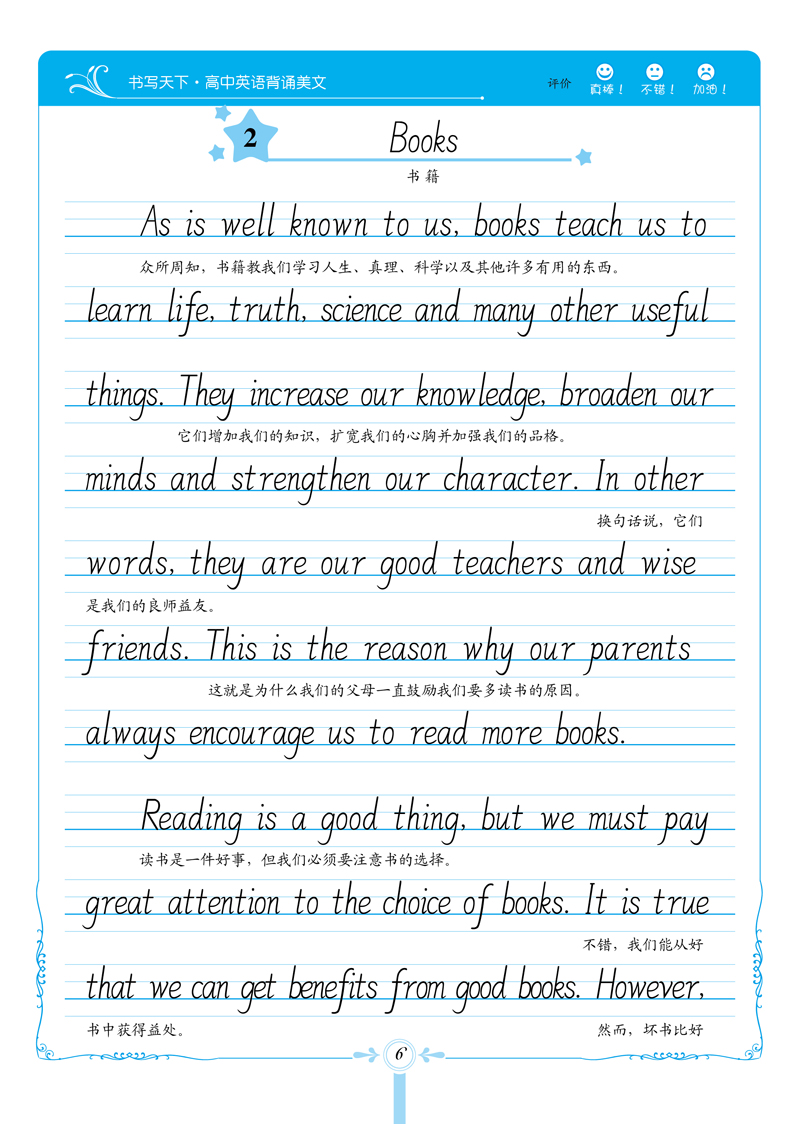 书写天下·高中英语背诵美文
评价 真棒！ 不错！ 加油！
2
Books
书籍
As is well known to us, books teach us to
众所周知，书籍教我们学习人生、真理、科学以及其他许多有用的东西。
learn life, truth, science and many other useful
things. They increase our knowledge, broaden our
它们增加我们的知识，扩宽我们的心胸并加强我们的品格。
minds and strengthen our character. In other
换句话说，它们
words, they are our good teachers and wise
是我们的良师益友。
friends. This is the reason why our parents
这就是为什么我们的父母一直鼓励我们要多读书的原因。
always encourage us to read more books.
Reading is a good thing, but we must pay
读书是一件好事，但我们必须要注意书的选择。
great attention to the choice of books. It is true
不错，我们能从好
that we can get benefits from good books. However,
书中获得益处。 然而，坏书比好
6